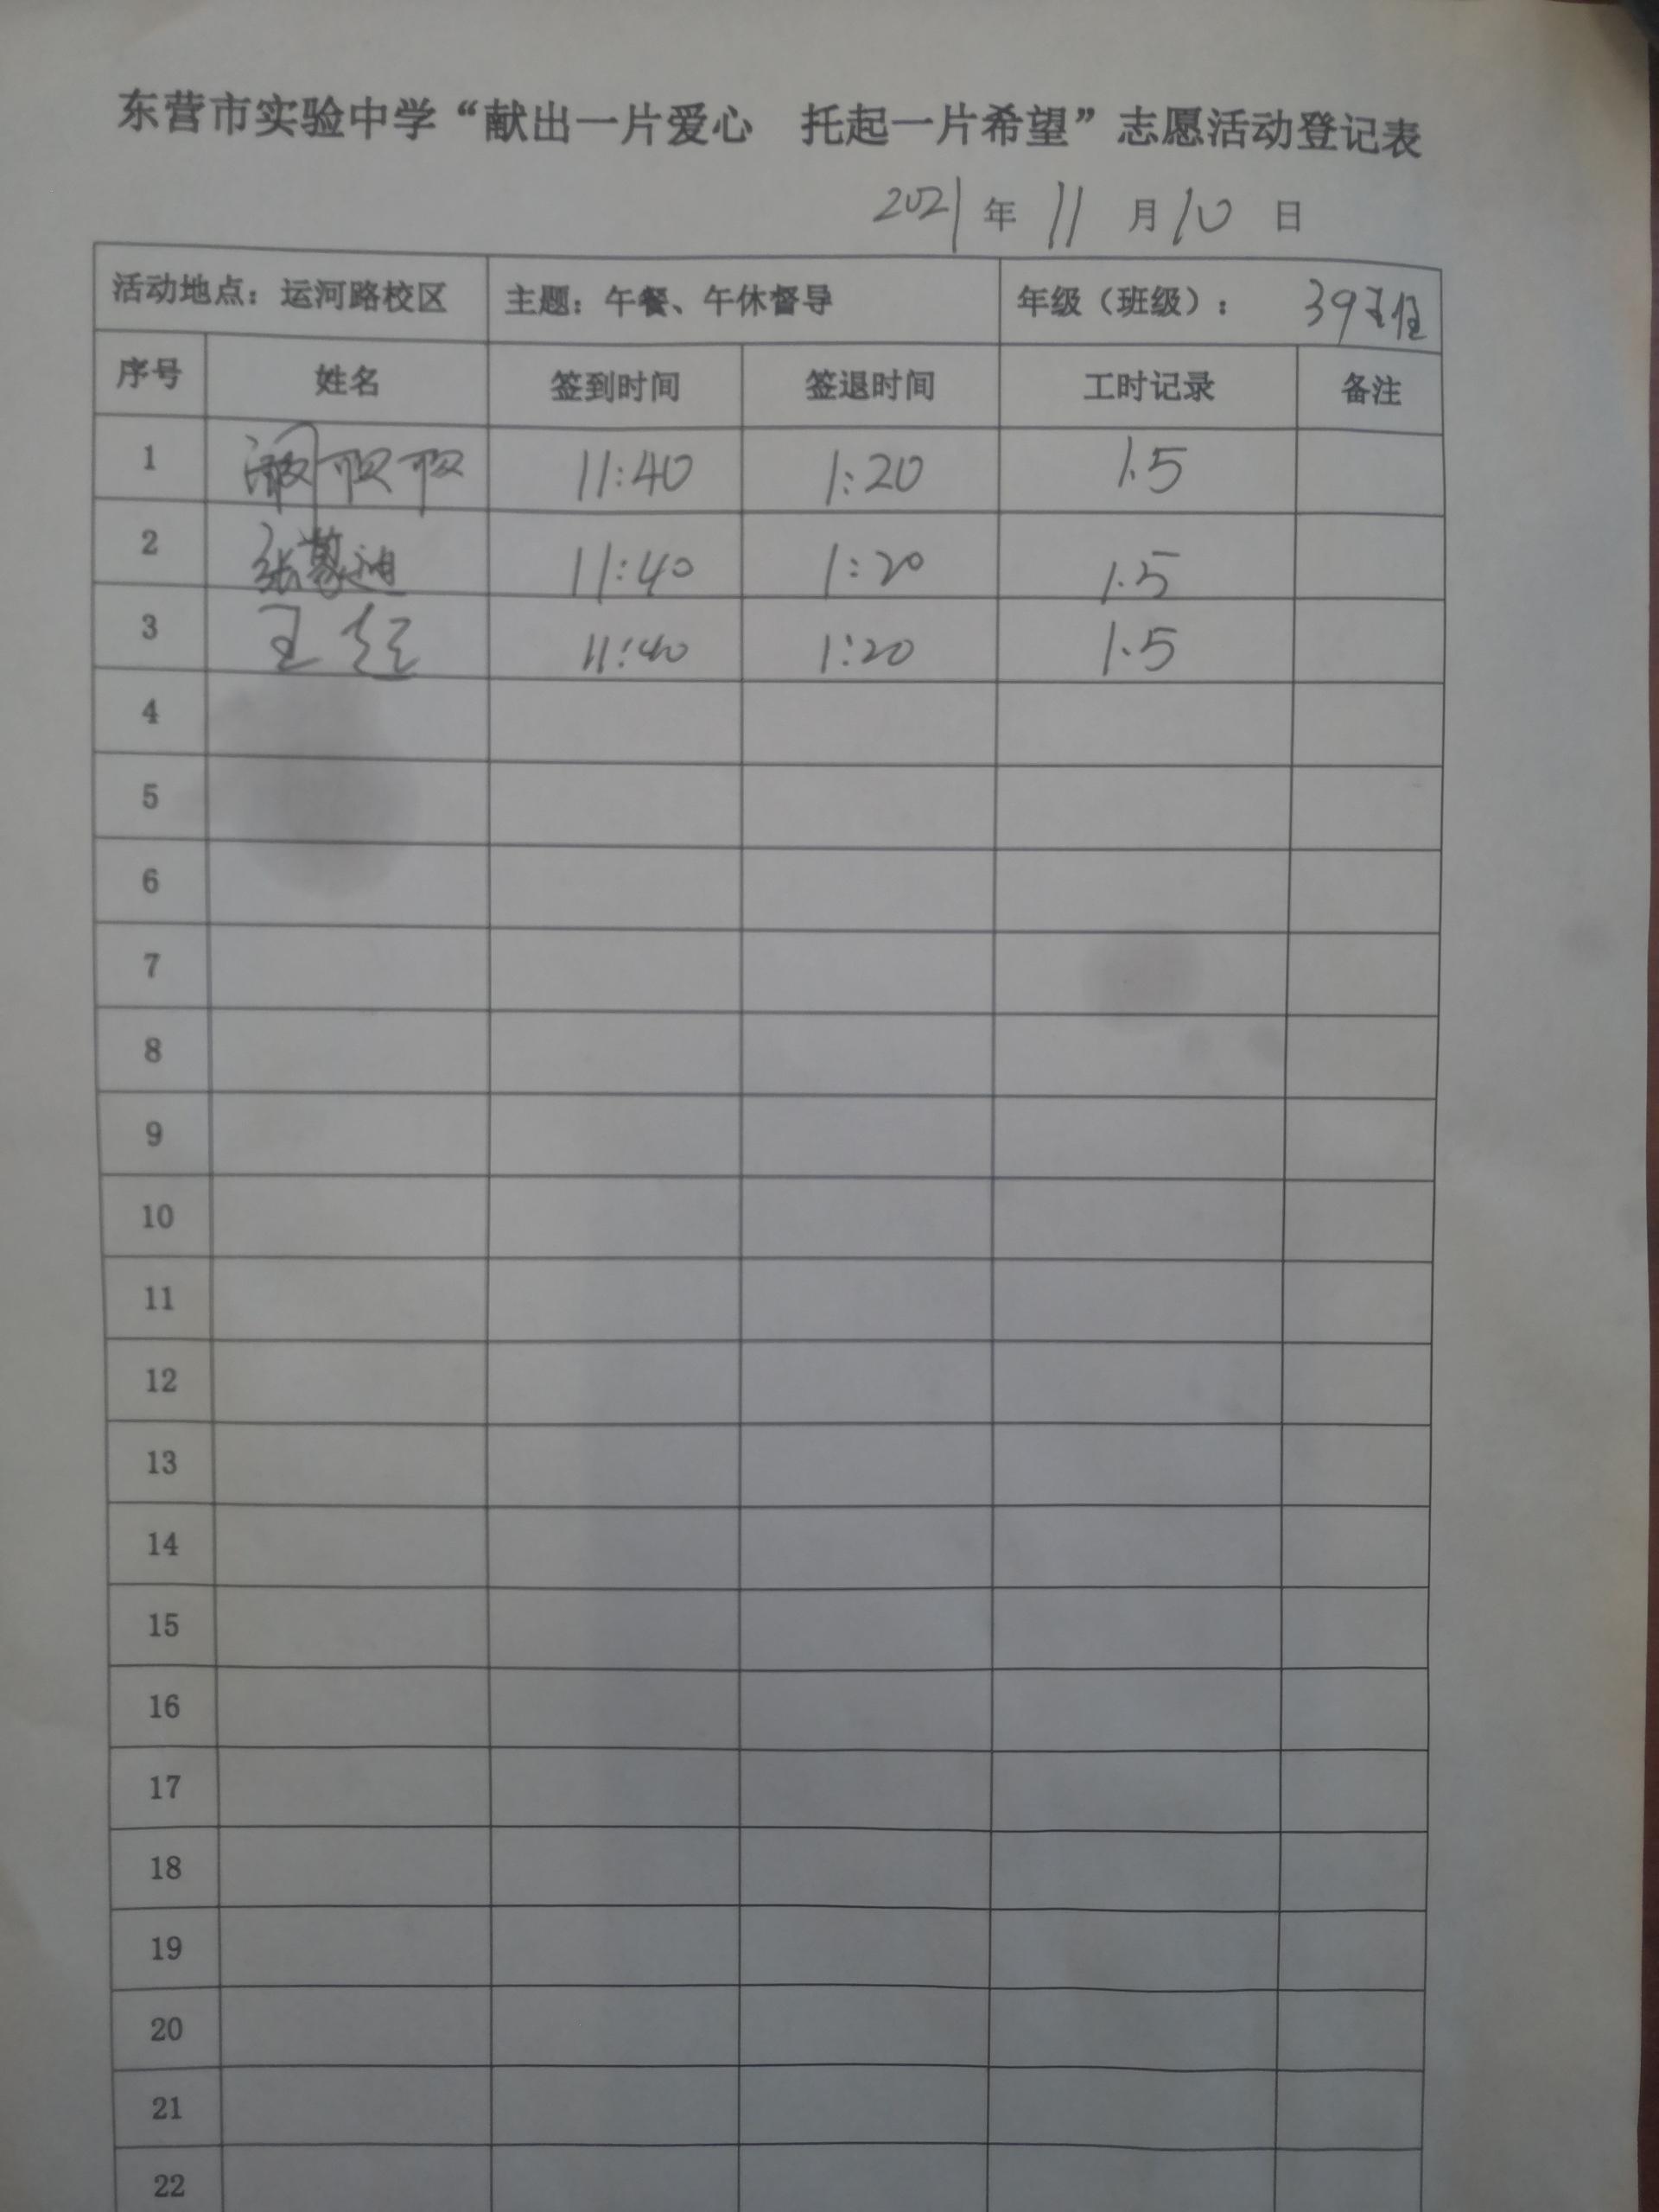 东营市实验中学“献出一片爱心 托起一片希望”志愿活动登记表
2021年 11 月 10 日
活动地点：运河路校区 主题：午餐、午休督导 年级（班级）： 39
序号 姓名 签到时间 签退时间 工时记录 备注
1 11:40 1:20 1.5
2 张蒙迪 11:40 1:20 1.5
3 王 11:40 1:20 1.5
4
5
6
7
8
9
10
11
12
13
14
15
16
17
18
19
20
21
22